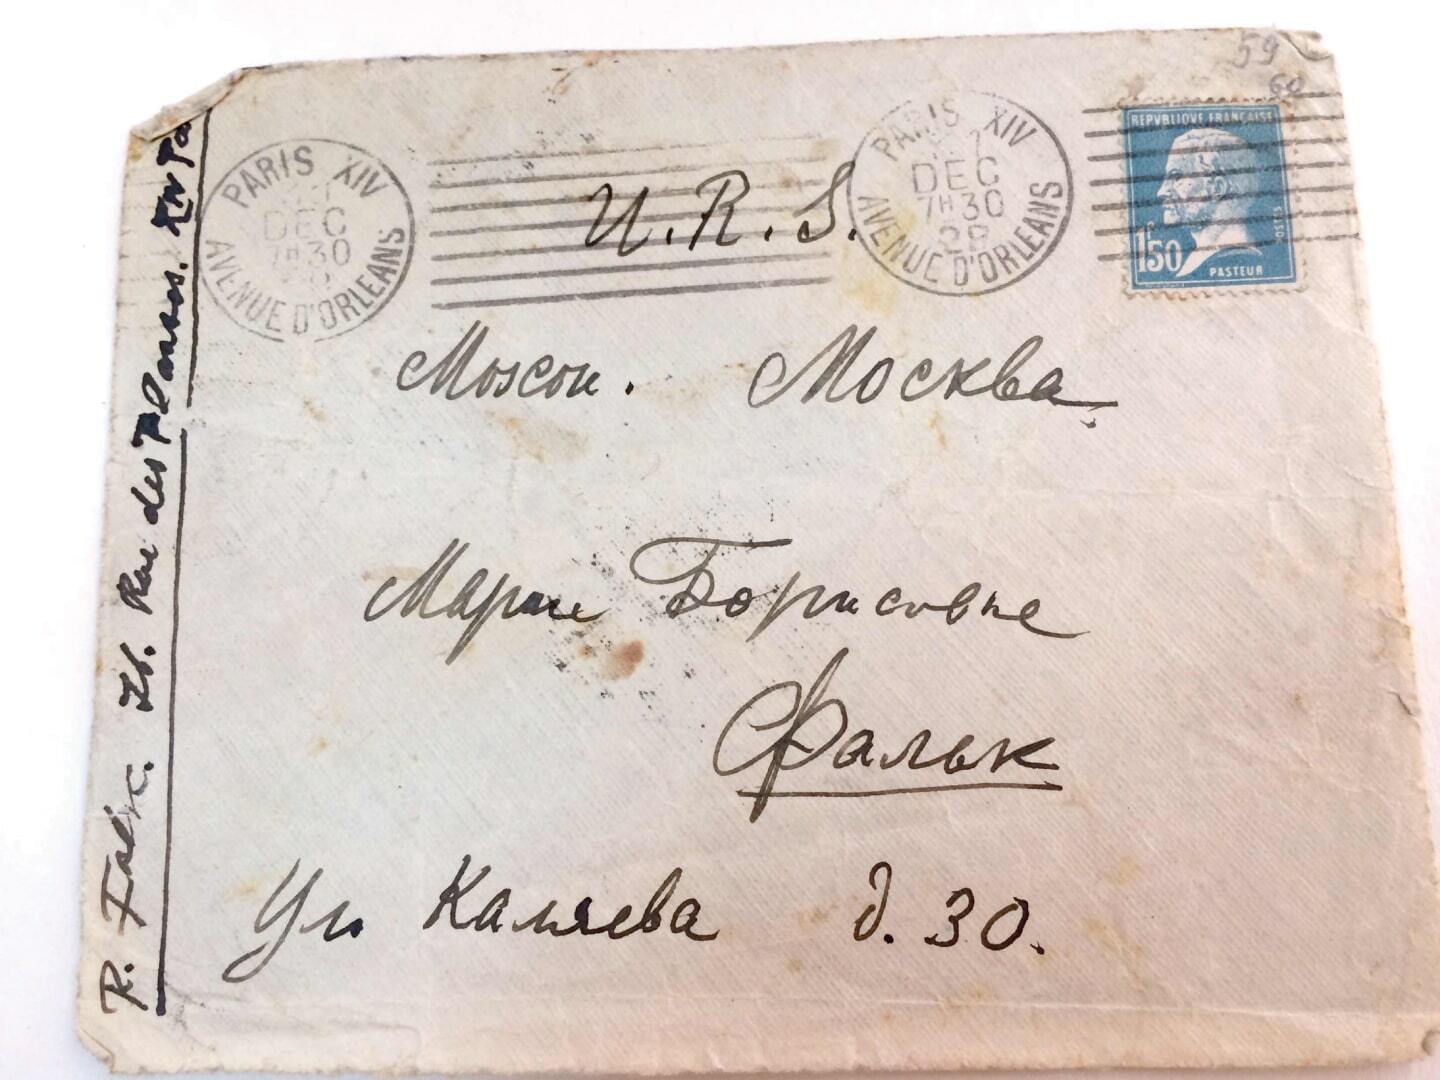 59
60
PARIS XIV
DEC
7H30
AVENUE D'ORLEANS
PARIS XIV
DEC
7H30
29
AVENUE D'ORLEANS
REPVBLIQVE FRANÇAISE
1F50
POSTES
PASTEUR
U.R.S.
Moscou. Москва
Марии Борисовне
Фальк
Ул Каляева д. 30.
R. Falk. Rue des Plantes.